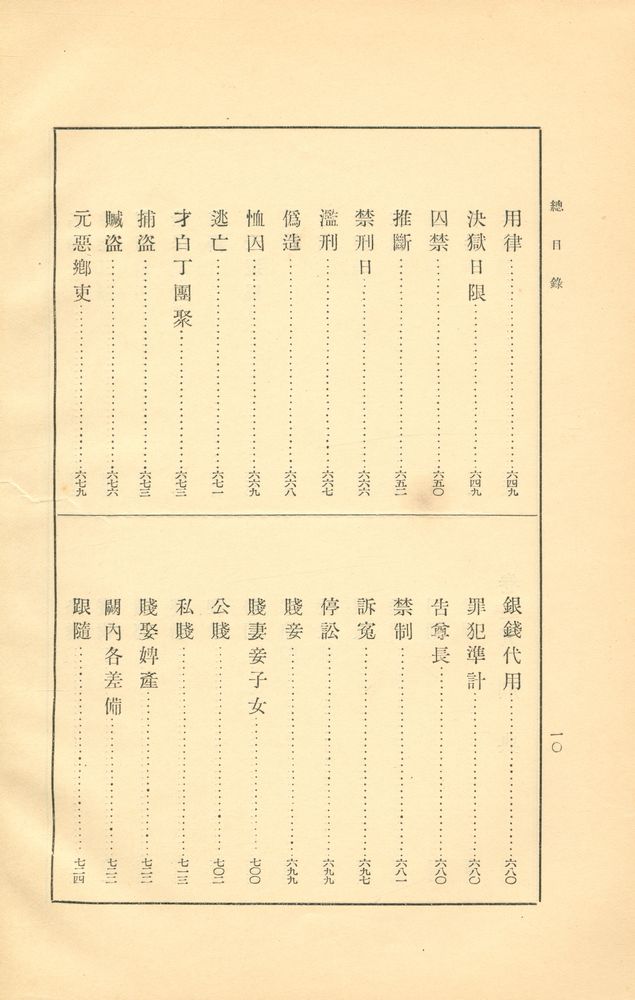 總目錄
用律……六四九
決獄日限……六四九
囚禁……六五〇
推斷……六五二
禁刑日……六六六
濫刑……六六七
僞造……六六八
恤囚……六六九
逃亡……六七一
才白丁團聚……六七三
捕盜……六七三
贓盜……六七六
元惡鄉吏……六七九
銀錢代用……六八〇
罪犯準計……六八〇
告尊長……六八〇
禁制……六八一
訴冤……六九七
停訟……六九九
賤妾……六九九
賤妻妾子女……七〇〇
公賤……七〇二
私賤……七一三
賤娶婢產……七二二
闕內各差備……七二二
跟隨……七二四
一〇